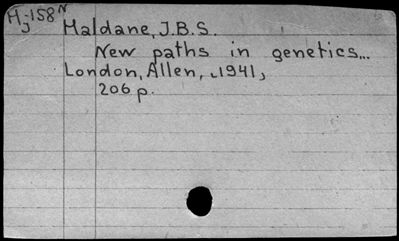 Hj-158N
Haldane, J.B.S.
New paths in genetics...
London, Allen, [1941]
206 p.